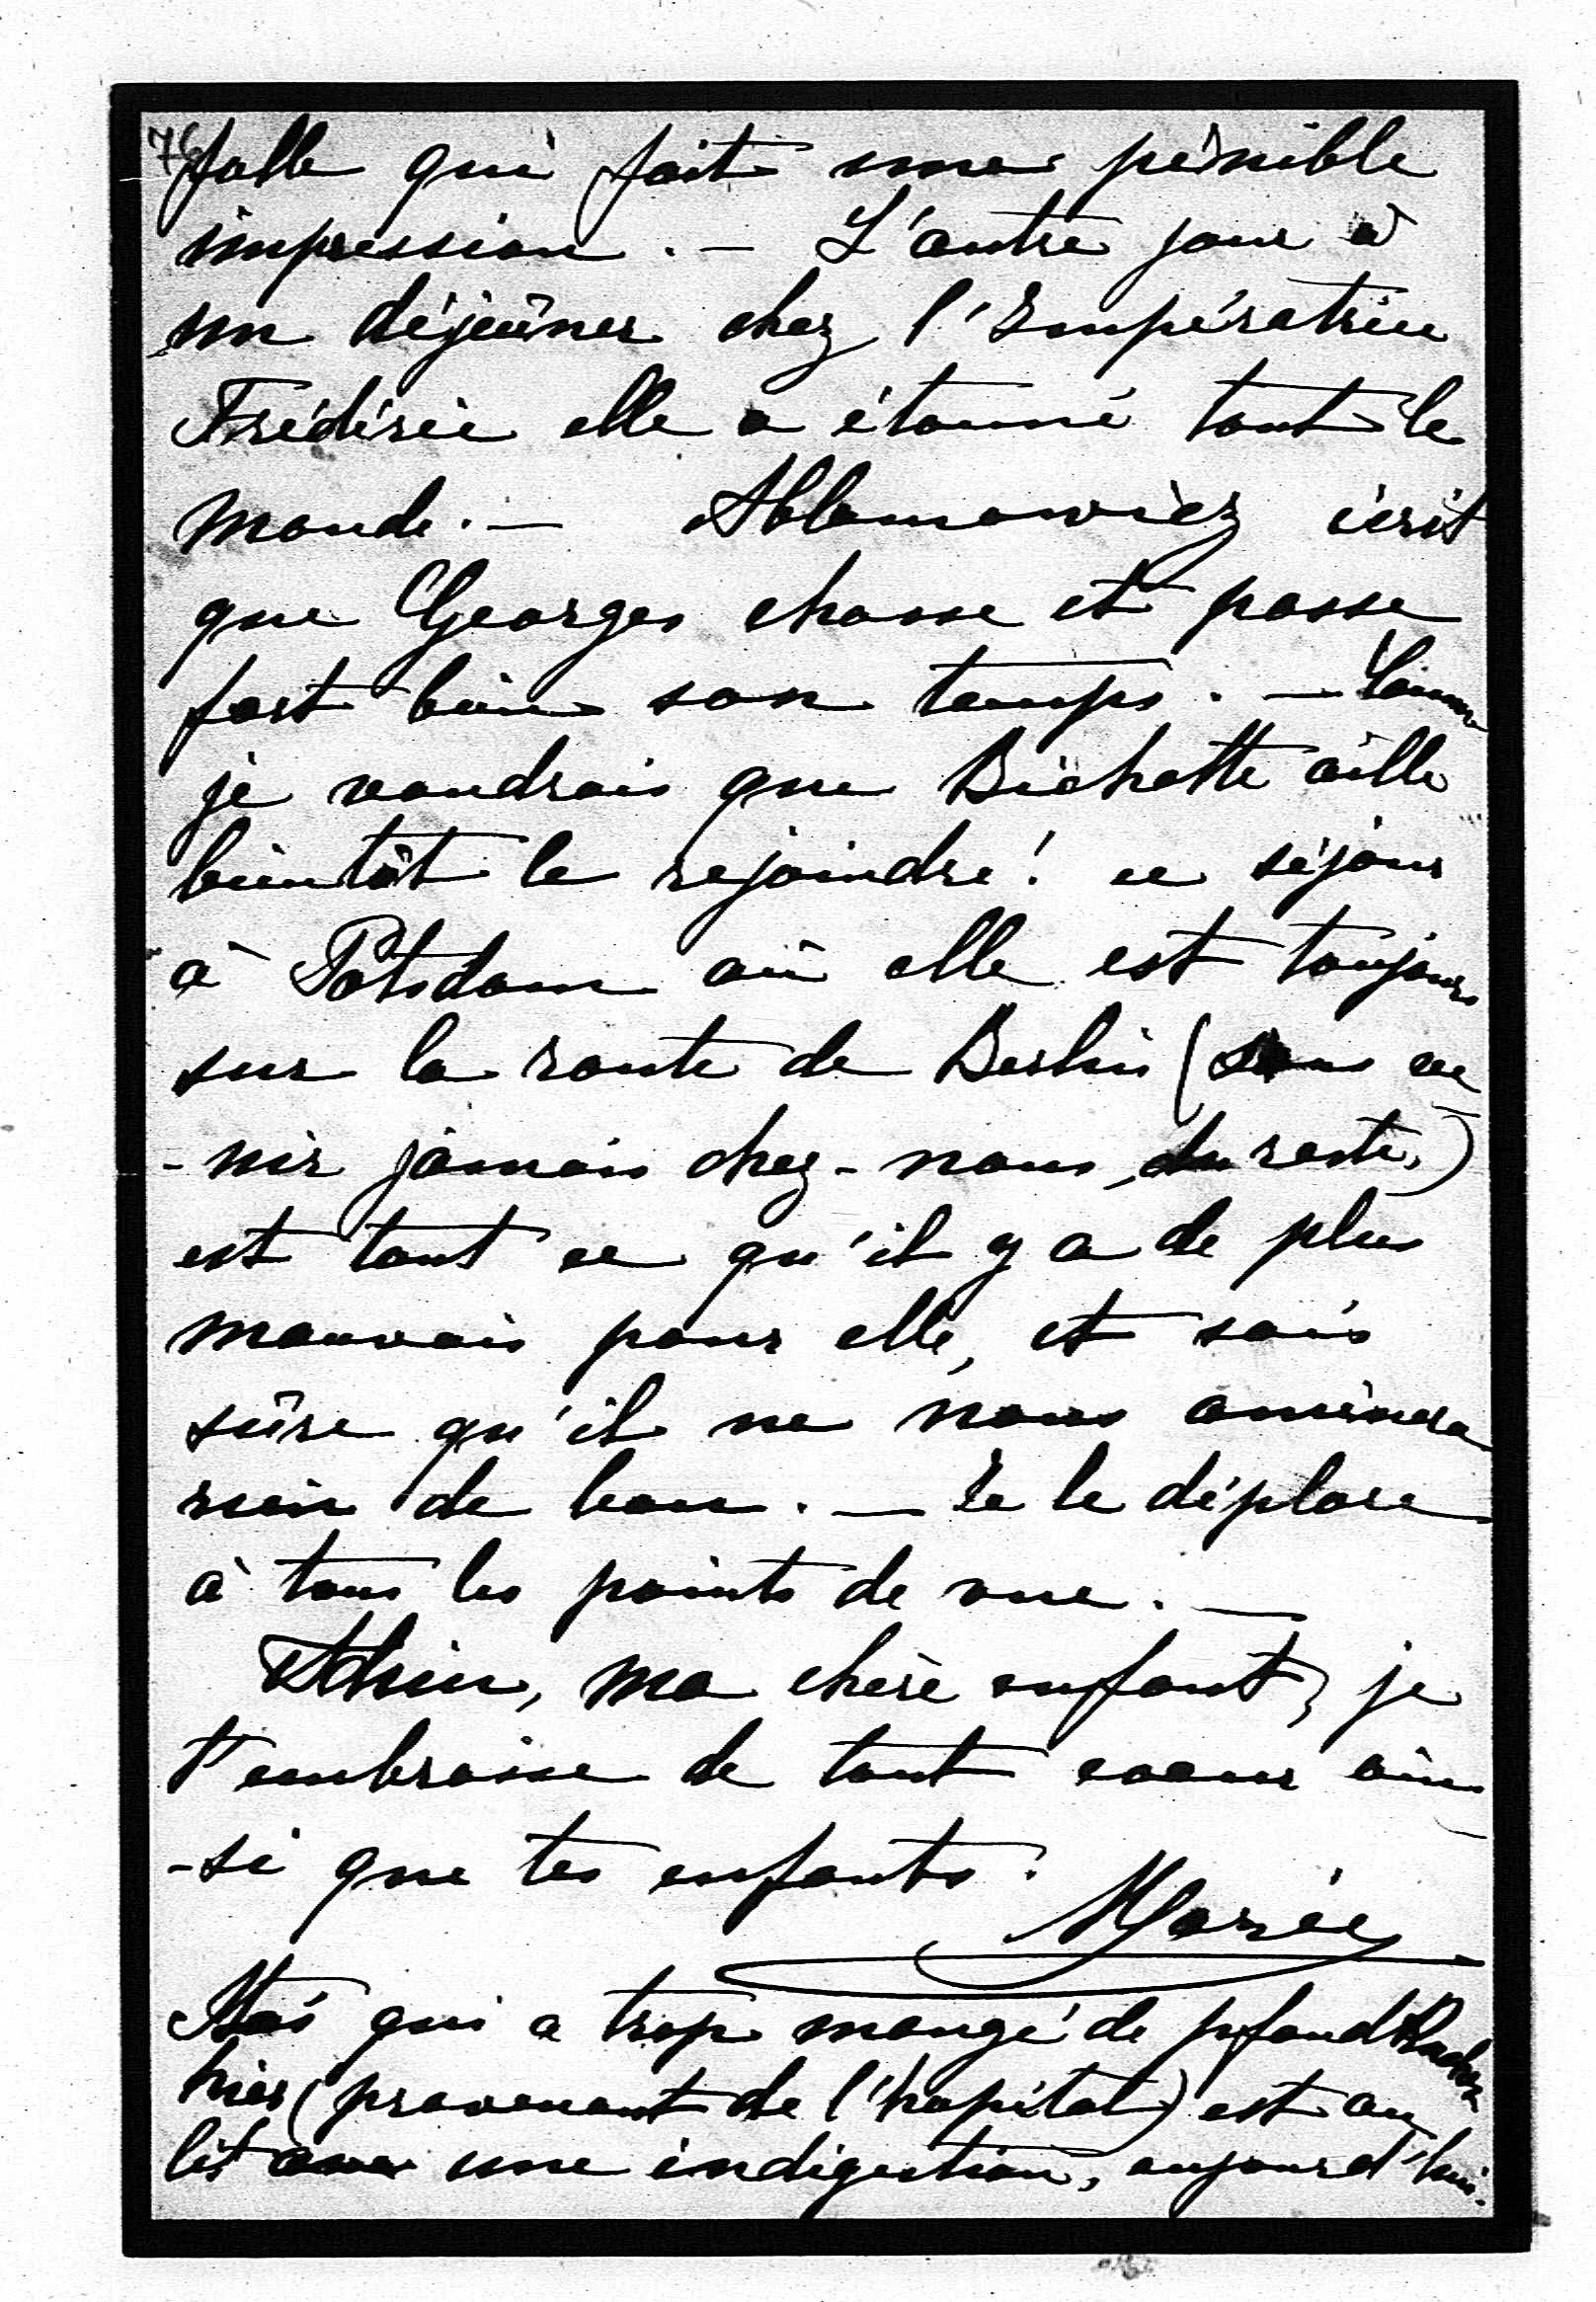 76
folle qui fait une pénible
impression. — L'autre jour à
un déjeûner chez l'Impératrice
Frédéric elle a étonné tout le
monde. — Ablamowicz écrit
que Georges chasse et passe
fort bien son temps. — Comme
je voudrais que Bichette aille
bientôt le rejoindre! ce séjour
à Potsdam où elle est toujours
sur la route de Berlin (sans ve
-nir jamais chez-nous, du reste,)
est tout ce qu'il y a de plus
mauvais pour elle, et sois
sûre qu'il ne nous amènera
rien de bon. — Je le déplore
à tous les points de vue. —
Adieu, ma chère enfant, je
t'embrasse de tout coeur ain
-si que tes enfants.
Marie
qui a trop mangé de pfandkuchen
hier (provenant de l'hopital) est au
lit avec une indigestion, aujourd'hui.